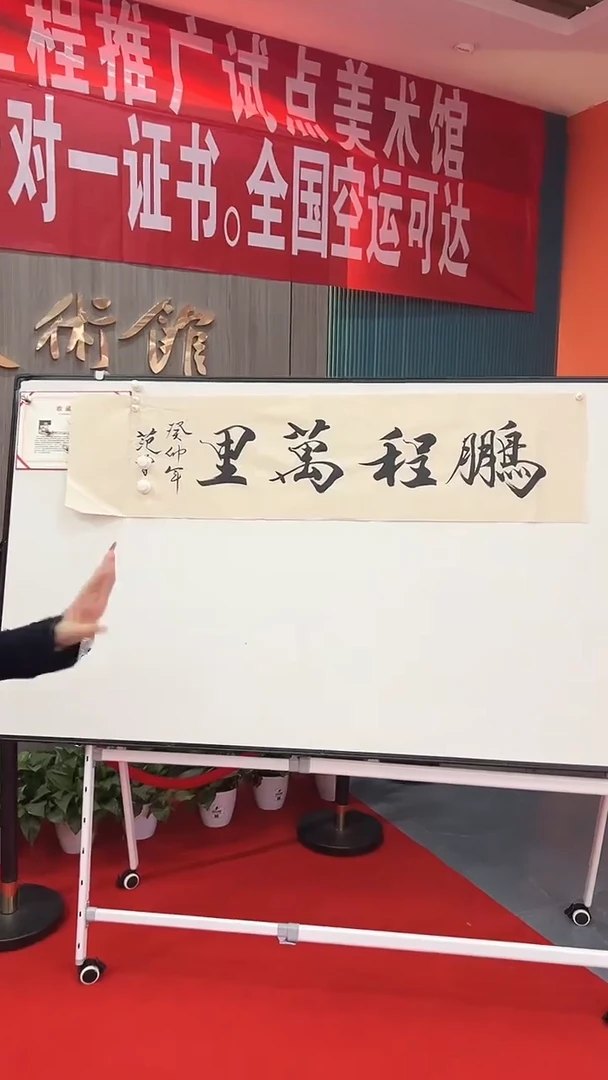 工程推广试点美术馆
对一证书。全国空运可达
術館
鵬程萬里
癸卯年
范